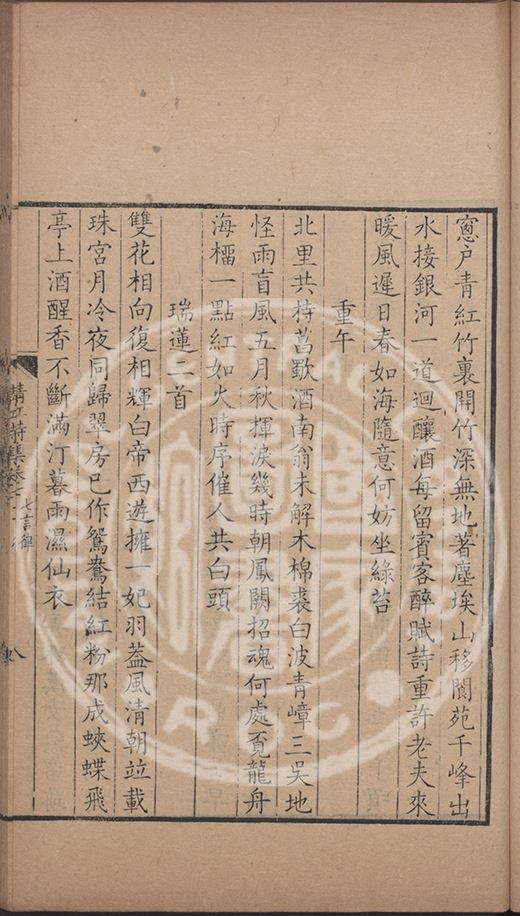 窓戶青紅竹裏開竹深無地著塵埃山移閬苑千峰出
水接銀河一道迴釀酒每留賓客醉賦詩重許老夫來
暖風遲日春如海隨意何妨坐綠苔
重午
北里共持菖歜酒南翁未解木棉裘白波青嶂三吳地
怪雨盲風五月秋揮淚幾時朝鳳闕招魂何處覔龍舟
海橊一點紅如火時序催人共白頭
瑞蓮二首
雙花相向復相輝白帝西遊擁一妃羽葢風清朝竝載
珠宮月冷夜同歸翠房已作鴛鴦結紅粉那成蛺蝶飛
亭上酒醒香不斷滿汀暮雨濕仙衣
七言律
八